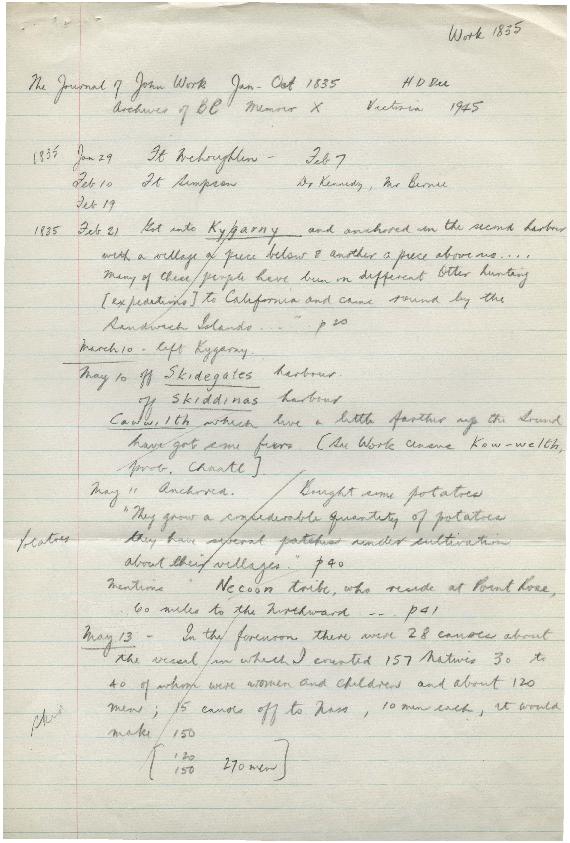 Work 1835
The Journal of John Work Jan - Oct 1835 H D Dee
Archives of BC Memoir X Victoria 1945
1835 Jan 29 Ft McLoughlin - Feb 7
Feb 10 Ft Simpson Dr Kennedy, Mr Birnie
Feb 19
1835 Feb 21 Got into Kygarny and anchored in the second harbour
with a village a piece below & another a piece above us....
Many of these people have been on different Otter hunting
[expeditions] to California and came round by the
Sandwich Islands...." p 20
March 10 - left Kygarny.
May 10 off Skidegates harbour.
off Skiddinas harbour
Caww,ilth which live a little farther up the Sound
have got some furs [See Work census Kow-welth,
prob. Chaatl]
May 11 Anchored. Bought some potatoes
"They grow a considerable quantity of potatoes
Potatoes they have several patches under cultivation
about their villages." p 40
Mentions " Necoon tribe, who reside at Point Rose,
60 miles to the Northward ... p 41
May 13 - In the forenoon there were 28 canoes about
the vessel in which I counted 157 Natives 30 to
40 of whom were women and children and about 120
men; 15 canoes off to Nass, 10 men each, it would
make 150
[120
150 270 men]